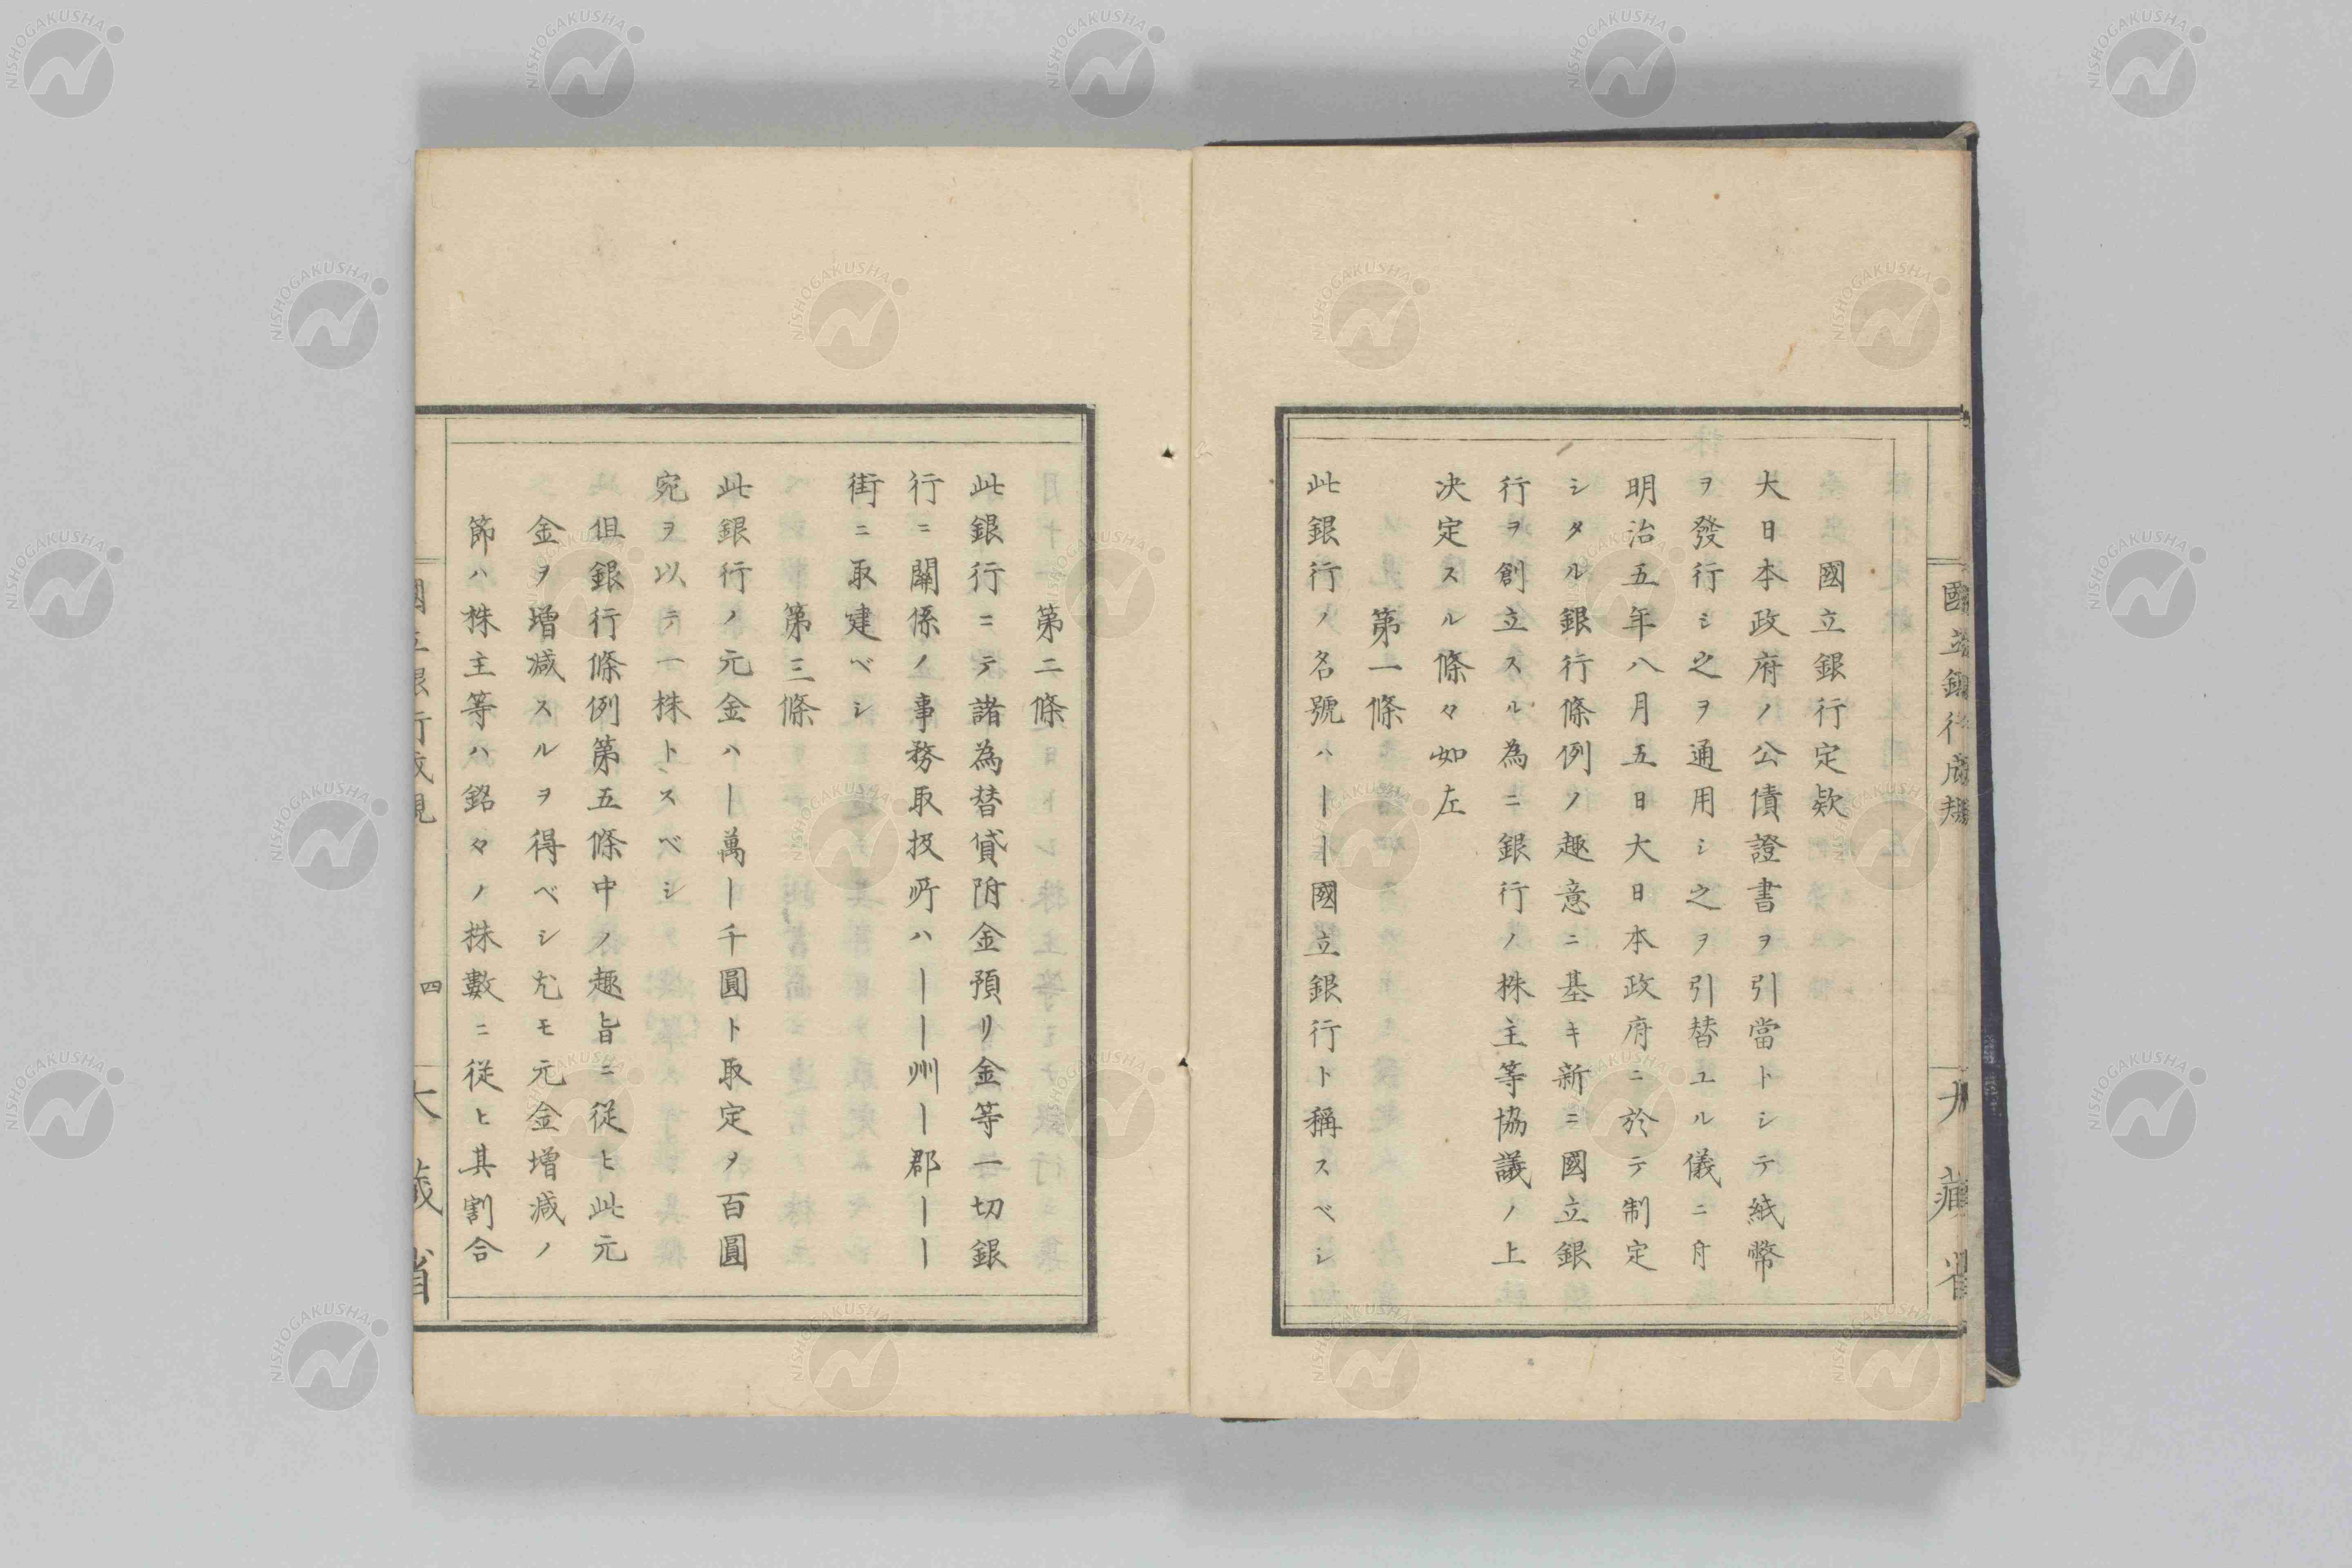 國立銀行成規
大藏省
國立銀行定欵
大日本政府ノ公債證書ヲ引當トシテ紙幣
ヲ發行シ之ヲ通用シ之ヲ引替ユル儀ニ付
明治五年八月五日大日本政府ニ於テ制定
シタル銀行條例ノ趣意ニ基キ新ニ國立銀
行ヲ創立スル為ニ銀行ノ株主等協議ノ上
决定スル條々如左
第一條
此銀行ノ名號ハ――國立銀行ト稱スベシ
第二條
此銀行ニテ諸為替貸附金預リ金等一切銀
行ニ關係ノ事務取扱所ハ――州―郡――
街ニ取建ベシ
第三條
此銀行ノ元金ハ―萬―千圓ト取定メ百圓
宛ヲ以テ一株トスベシ
但銀行條例第五條中ノ趣旨ニ從ヒ此元
金ヲ増减スルヲ得ベシ尤モ元金増减ノ
節ハ株主等ハ銘々ノ株數ニ從ヒ其割合
國立銀行成規
四
大藏省
NISHOGAKUSHA